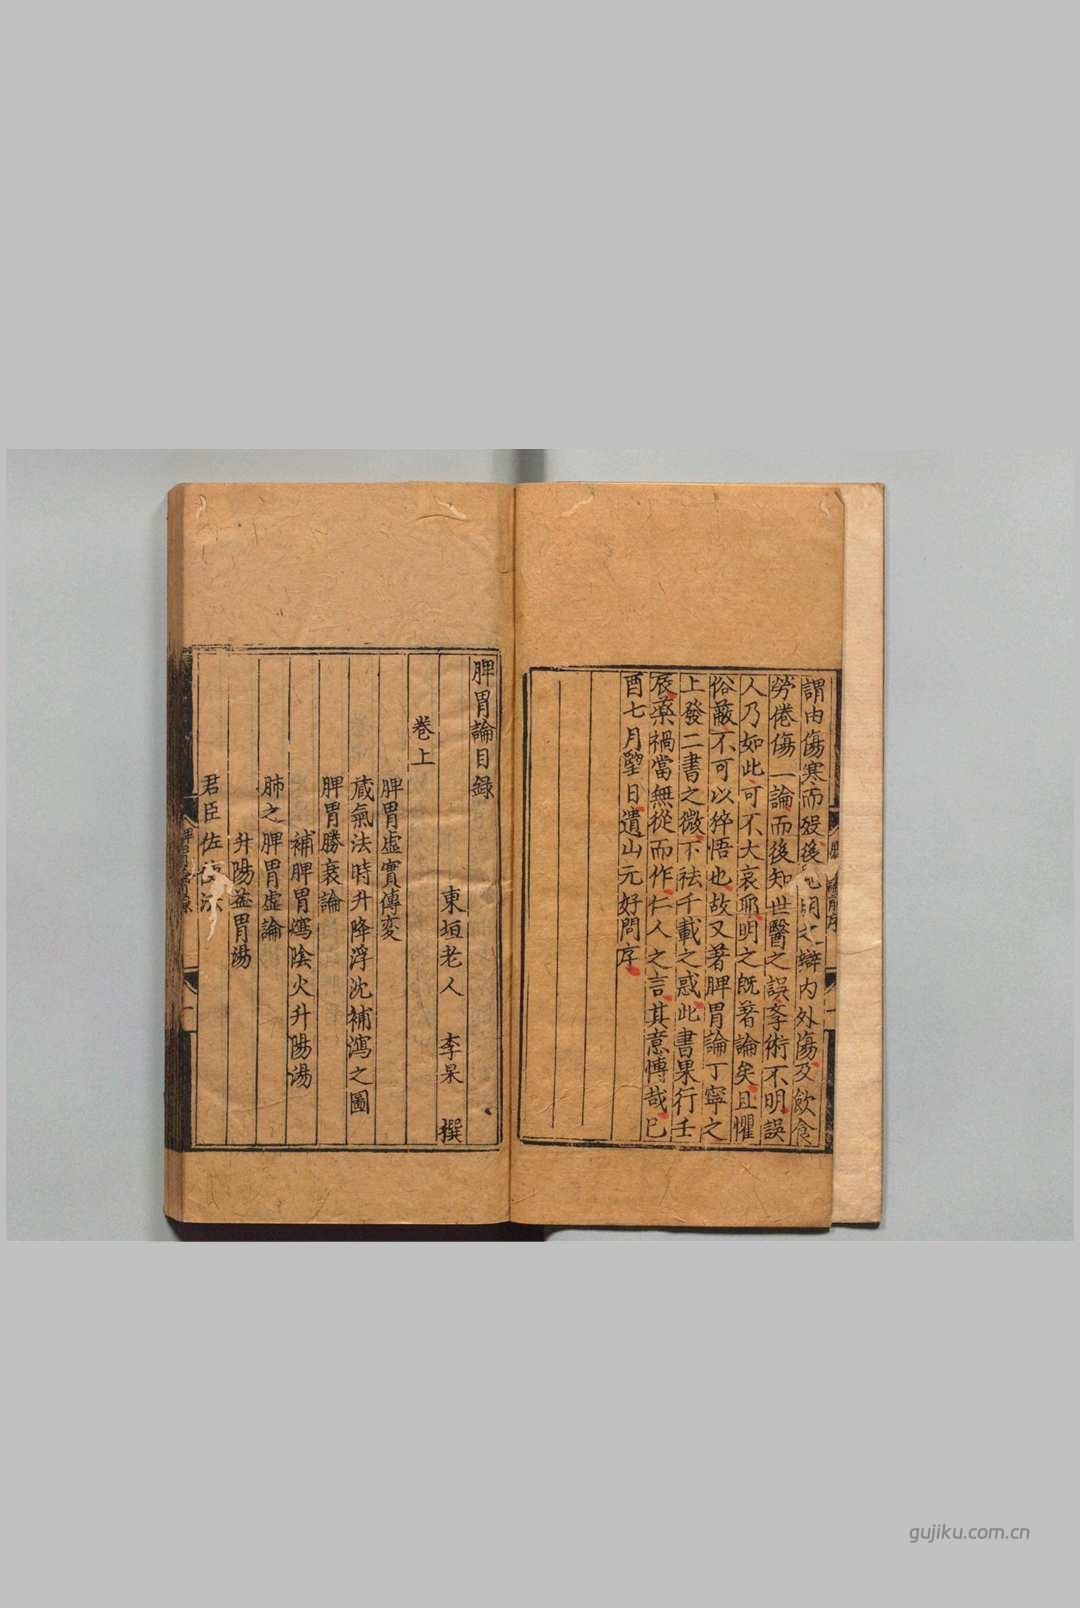 謂由傷寒而歿後明之辯内外傷及飲食
勞倦傷一論而後知世醫之誤學術不明誤
人乃如此可不大哀耶明之既著論矣且懼
俗蔽不可以猝悟也故又著脾胃論丁寧之
上發二書之微下祛千載之惑此書果行壬
辰藥禍當無從而作仁人之言其意愽哉已
酉七月望日遺山元好問序
脾胃論目録
東垣老人 李杲 撰
卷上
脾胃虛實傳変
蔵氣法時升降浮沈補瀉之圖
脾胃勝衰論
補脾胃瀉隂火升陽湯
肺之脾胃虛論
升陽益胃湯
君臣佐法
gujiku.com.cn